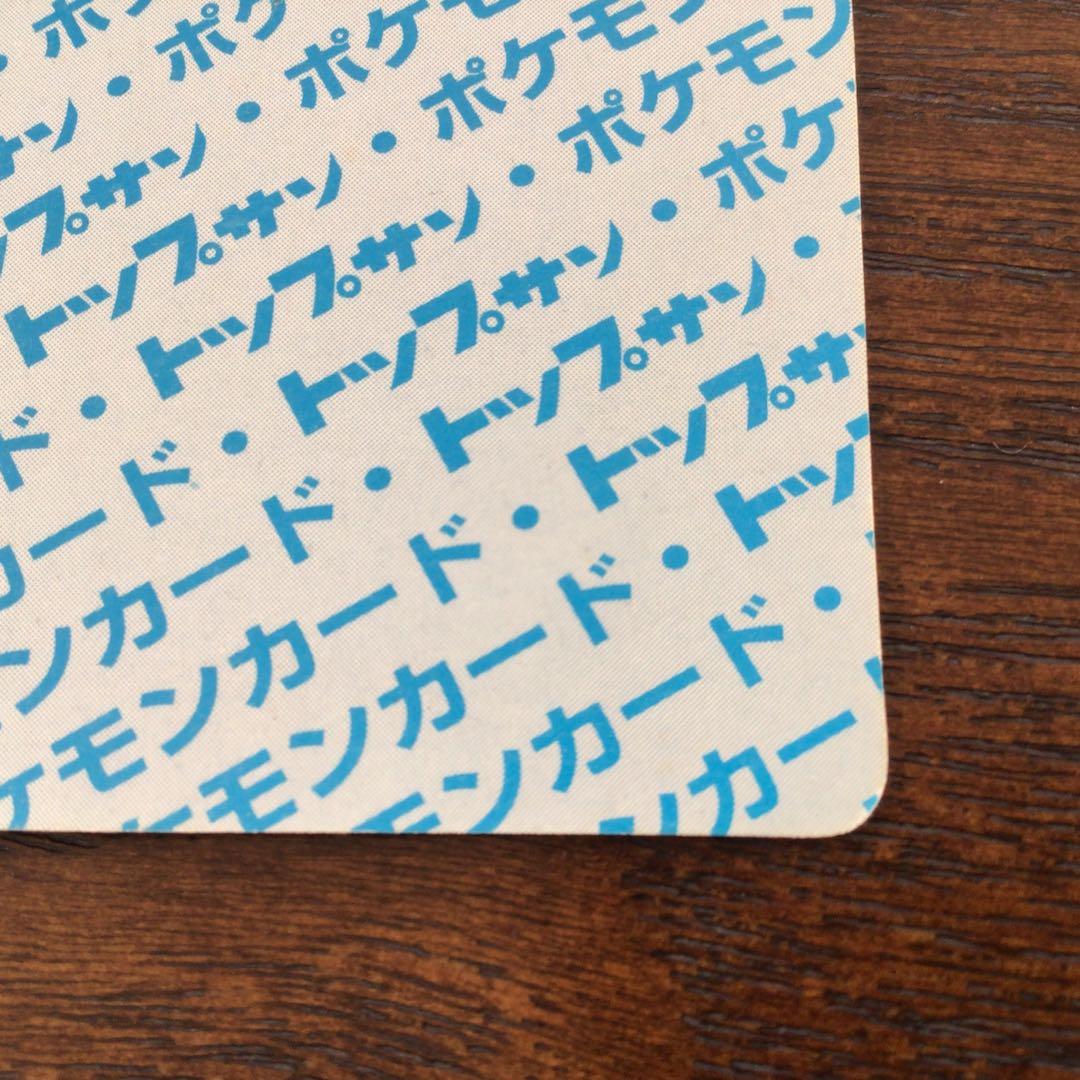 ・ポ
サン・ポケ
プサン・ポケモ
トップサン・ポケモン
ド・トップサン・ポケモン
カード・トップサン・ポケ
ンカード・トップサン・
ケモンカード・トップサ
モンカード・トッ
モンカード・
ンカー